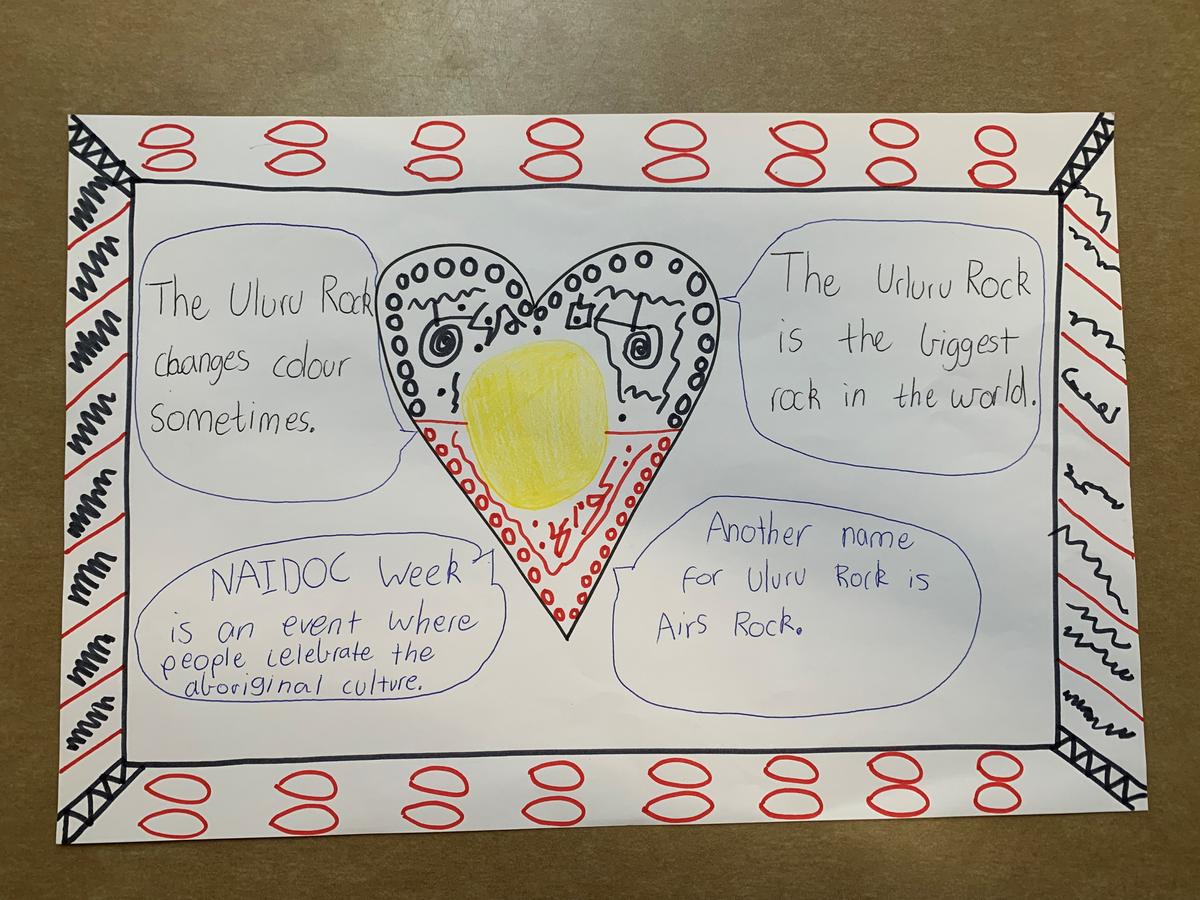 The Uluru Rock
changes colour
sometimes.
The Urluru Rock
is the biggest
rock in the world.
NAIDOC Week
is an event where
people celebrate the
aboriginal culture.
Another name
for Uluru Rock is
Airs Rock.